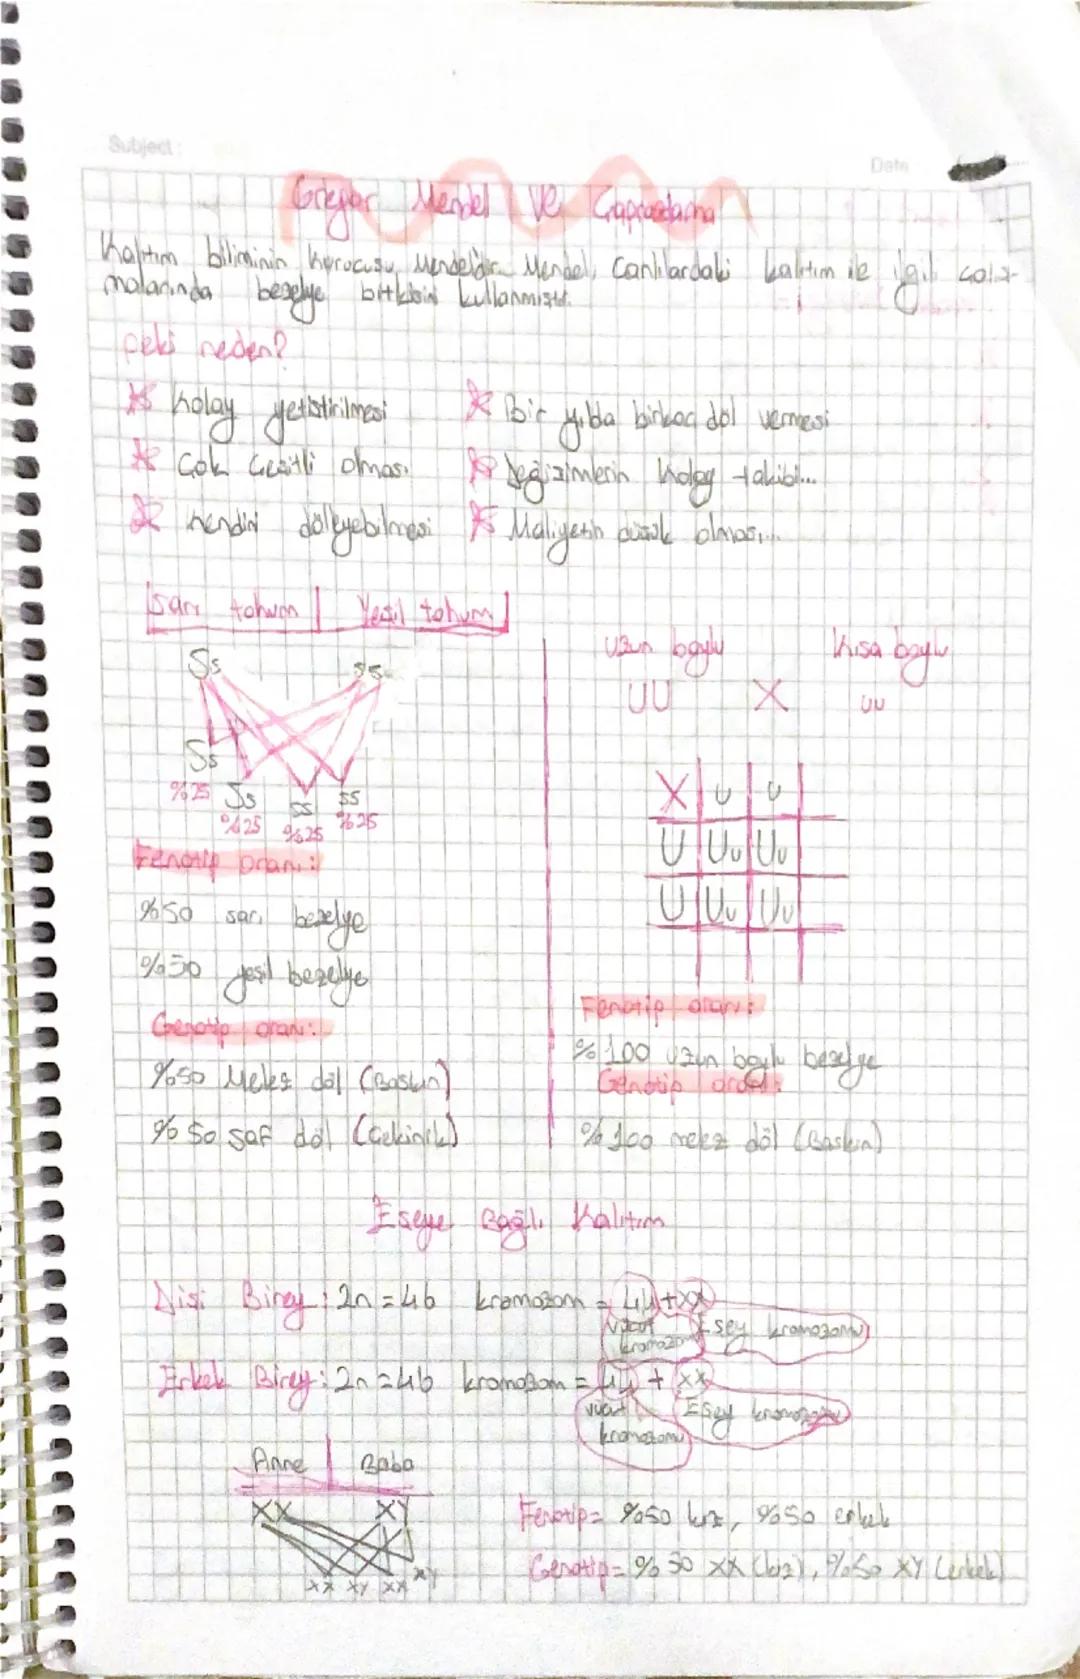 Subject:
Date
Gregor Mendel ve Çaprazlama
Kalıtım biliminin kurucusu Mendeldir. Mendel, Canlılardaki kalıtım ile ilgili çalış-
malarında bezelye bitkisini kullanmıştır.
peki neden?
Kolay yetiştirilmesi
Bir yılda birkaç döl vermesi
Çok Çeşitli olması
Değişimlerin Kolay takibi...
kendini dölleyebilmesi
Maliyetin düşük olması...
Sarı tohum | Yeşil tohum
Ss ss
Ss
%25 Ss ss ss
%25 %25 %25
Fenotip oranı:
%50 sarı bezelye
%50 yeşil bezelye
Genotip oranı:
%50 Melez döl (Baskın)
%50 saf döl (Çekinik)
Uzun boylu Kısa boylu
UU X uu
X u u
U Uu Uu
U Uu Uu
Fenotip oranı:
%100 uzun boylu bezelye
Genotip oranı:
%100 melez döl (Baskın)
Eşeye Bağlı Kalıtım
Dişi Birey: 2n=46 kromozom = 44+XX
Vücut kromozomu Eşey kromozomu
Erkek Birey: 2n=46 kromozom = 44 + XX
vücut kromozomu Eşey kromozomu
Anne | Baba
XX XY
XX XY XX XY
Fenotip= %50 kız, %50 erkek
Genotip= %50 XX (kız), %50 XY (erkek)